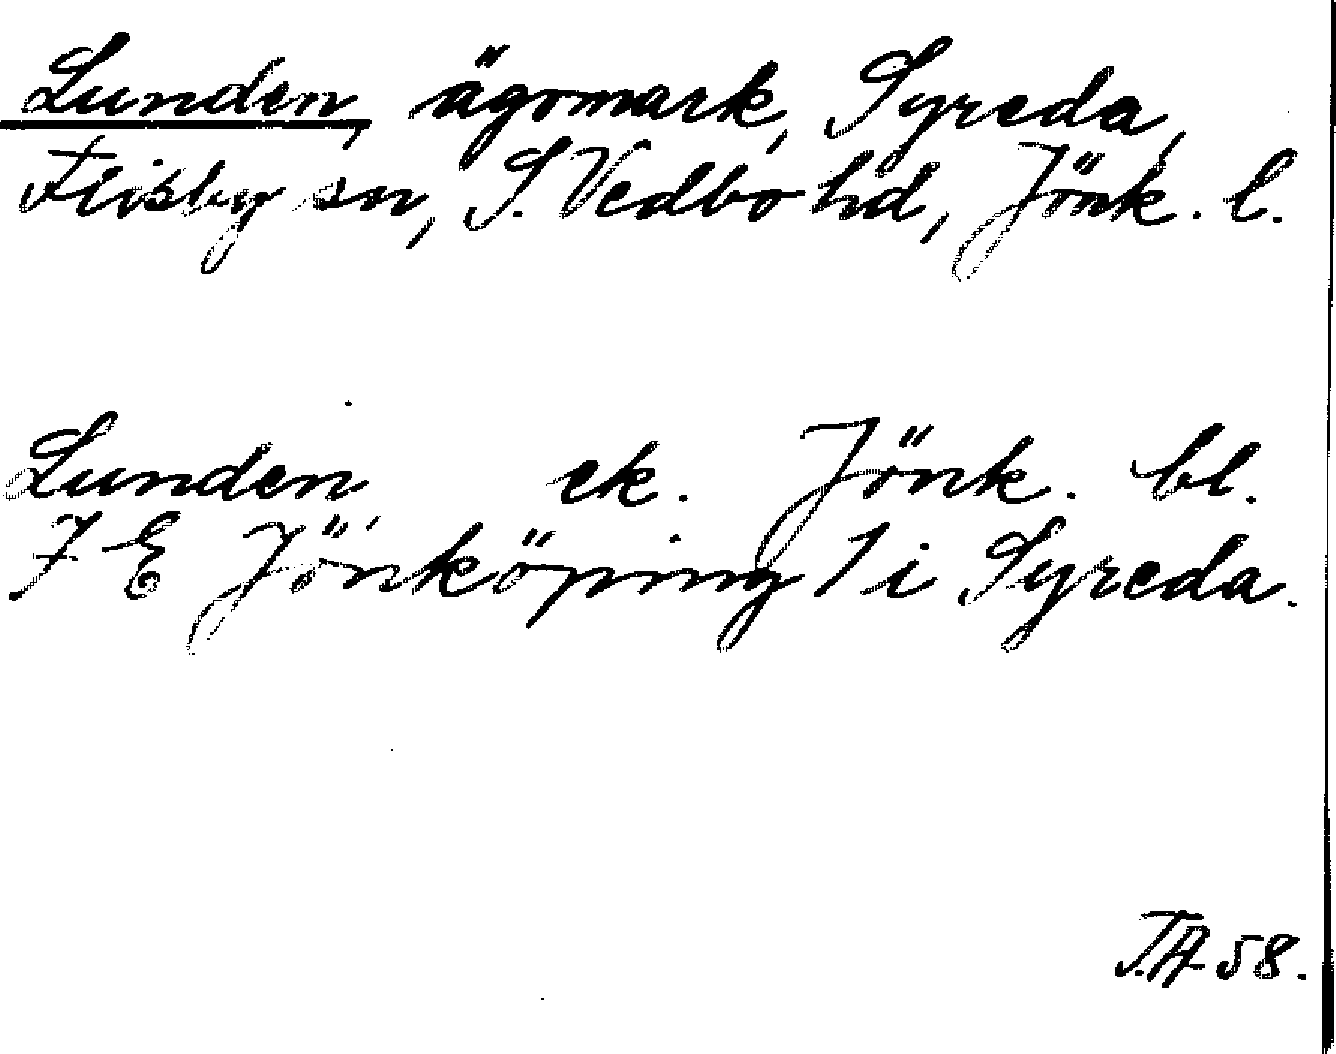 Lunden, ägomark, Syreda,
Flisby sn, S. Vedbo hd, Jönk. l.
Lunden ek. Jönk. bl.
7 E Jönköping 1 i Syreda.
T.A. 58.